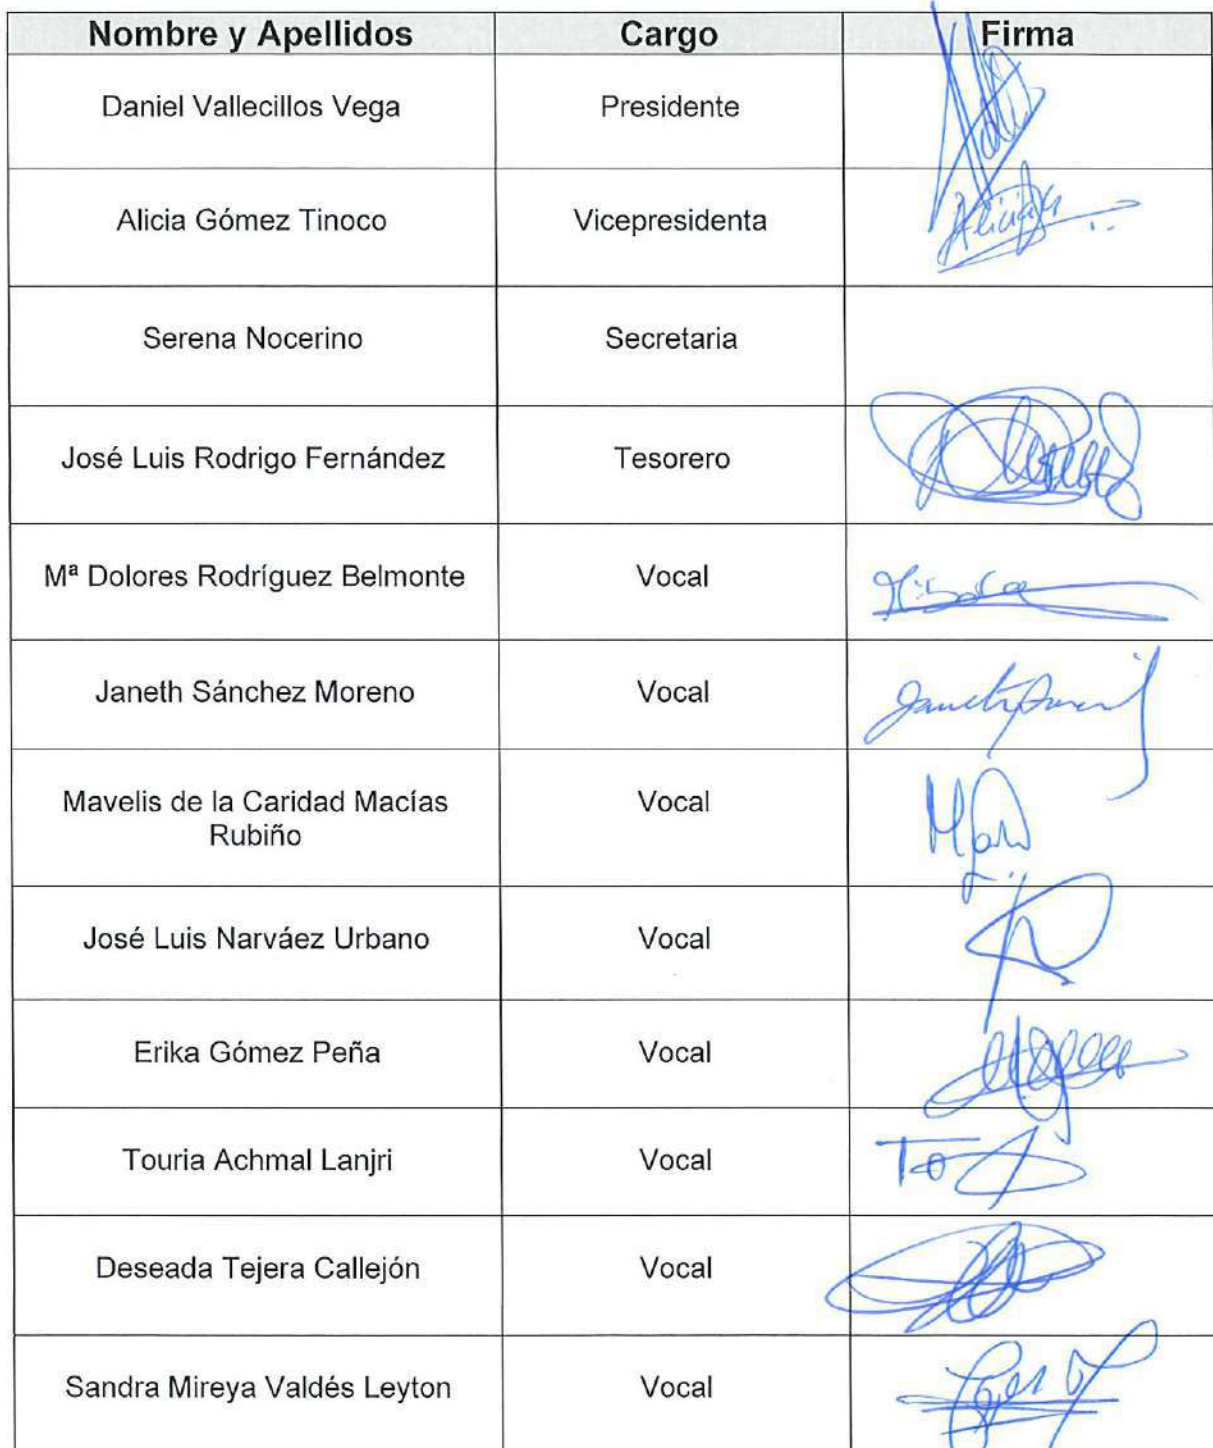 Nombre y Apellidos Cargo Firma
Daniel Vallecillos Vega Presidente
Alicia Gómez Tinoco Vicepresidenta
Serena Nocerino Secretaria
José Luis Rodrigo Fernández Tesorero
Mª Dolores Rodríguez Belmonte Vocal
Janeth Sánchez Moreno Vocal
Mavelis de la Caridad Macías Vocal
Rubiño
José Luis Narváez Urbano Vocal
Erika Gómez Peña Vocal
Touria Achmal Lanjri Vocal
Deseada Tejera Callejón Vocal
Sandra Mireya Valdés Leyton Vocal